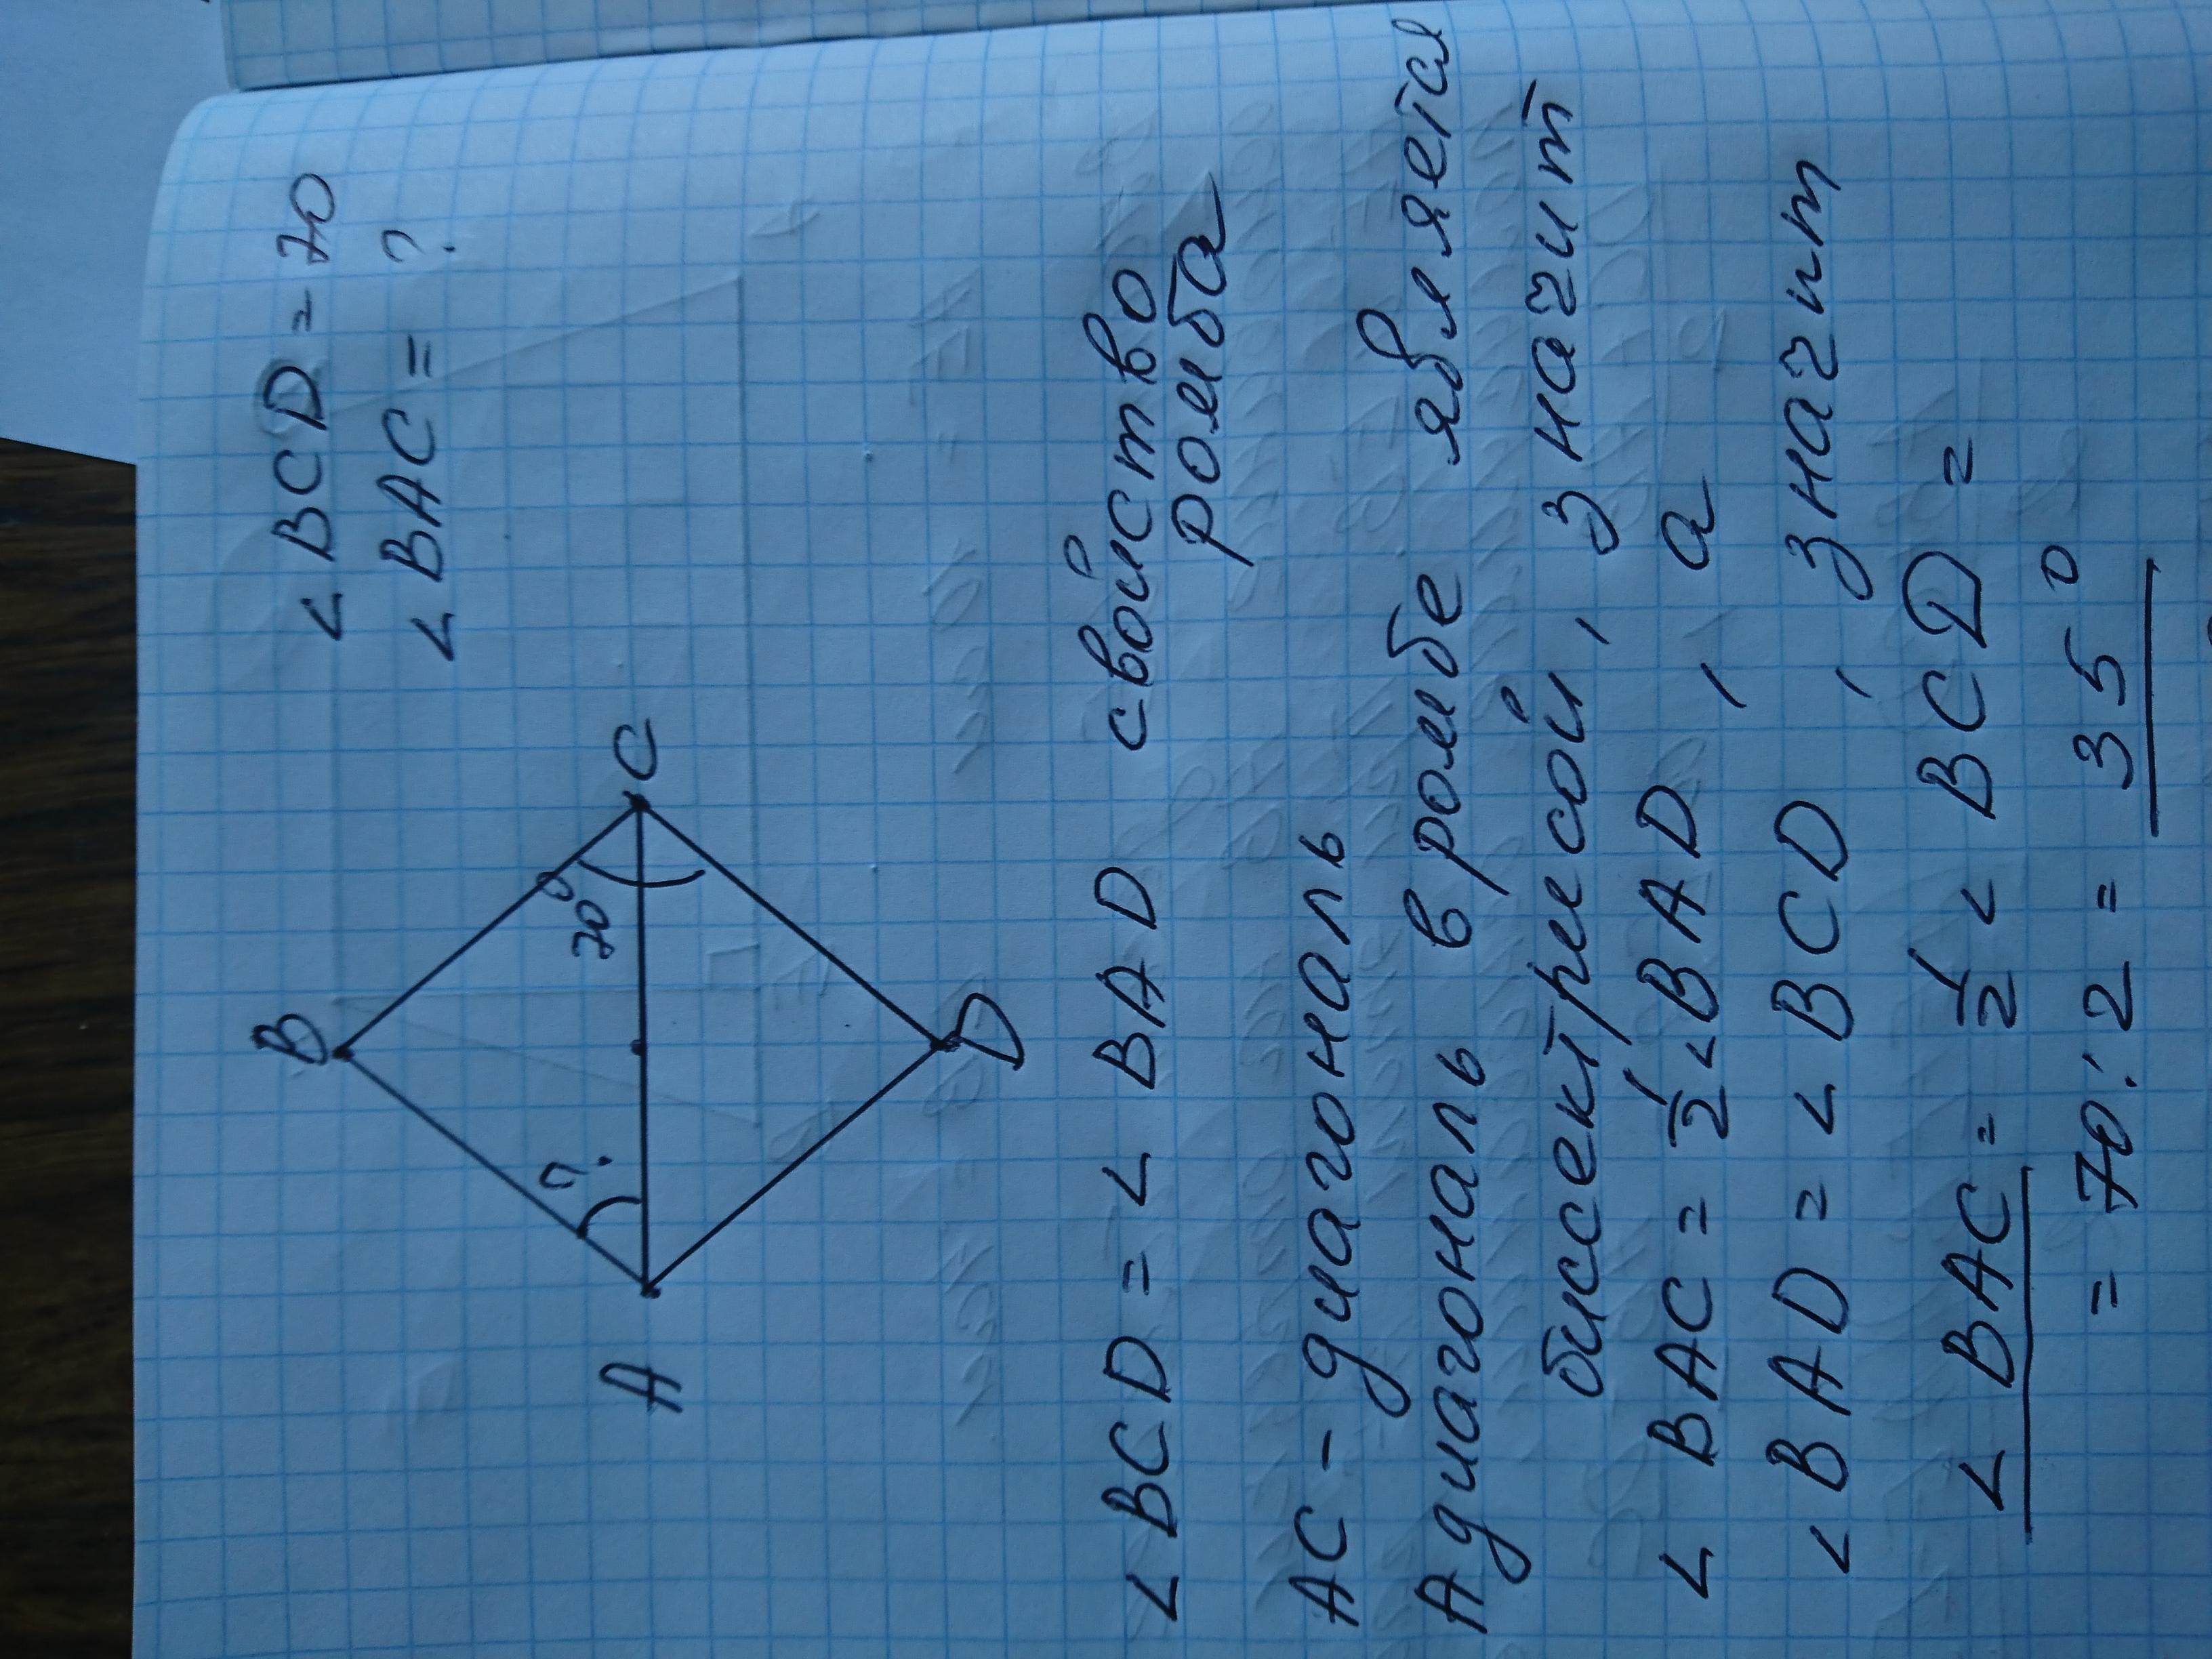 ∠ BCD = 70
∠ BAC = ?
B
?
70°
A
C
D
∠ BCD = ∠ BAD свойство
ромба
AC - диагональ
А диагональ в ромбе является
биссектрисой, значит
∠ BAC = 1/2 ∠ BAD, а
∠ BAD = ∠ BCD, значит
∠ BAC = 1/2 ∠ BCD =
= 70:2 = 35°